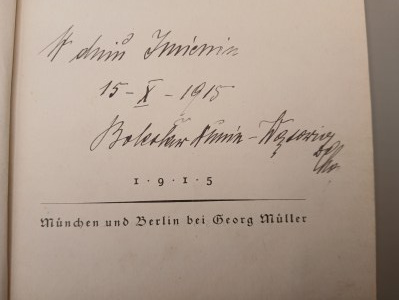 W dniu Imienin
15-X-1915
Bolesław
1·9·1·5
München und Berlin bei Georg Müller